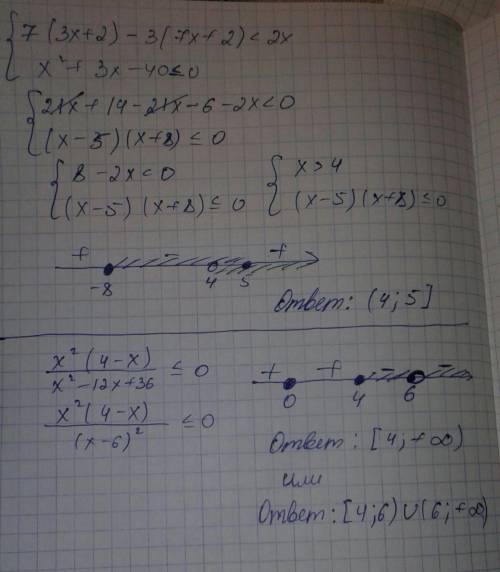 { 7(3x+2) - 3(7x+2) < 2x
x² + 3x - 40 ≤ 0
{ 21x + 14 - 21x - 6 - 2x < 0
(x-5)(x+8) ≤ 0
{ 8 - 2x < 0
(x-5)(x+8) ≤ 0
{ x > 4
(x-5)(x+8) ≤ 0
+ - +
-8 4 5
Ответ: (4; 5]
x²(4-x) / x²-12x+36 ≤ 0
x²(4-x) / (x-6)² ≤ 0
+ + - -
0 4 6
Ответ: [4; +∞)
или
Ответ: [4;6) ∪ (6; +∞)